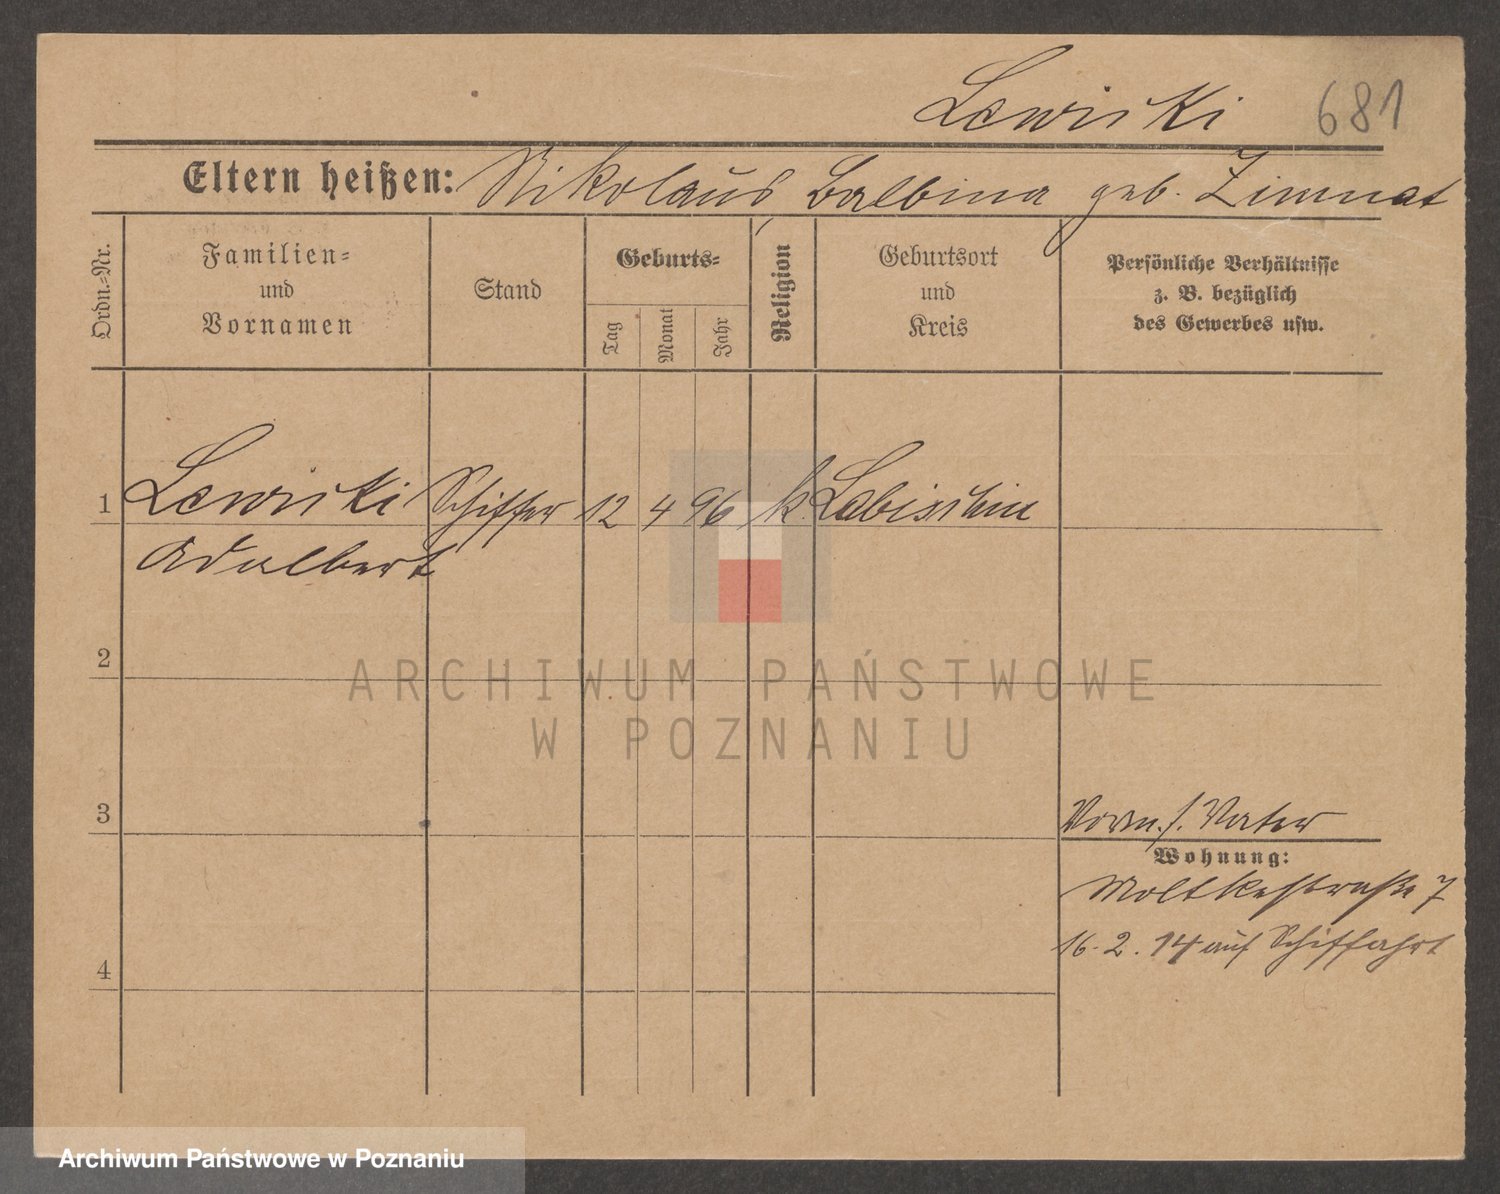 Lewiński
681
Eltern heißen: Nikolaus Balbina geb. Zimnat
Ordn.-Nr.
Familien-
und
Vornamen
Stand
Geburts-
Tag
Monat
Jahr
Religion
Geburtsort
und
Kreis
Persönliche Verhältnisse
z. B. bezüglich
des Gewerbes usw.
1 Lewiński Schiffer 12 4 96 k. Labischin
Adalbert
2
ARCHIWUM PAŃSTWOWE
W POZNANIU
3
Vorm. s. Vater
Wohnung:
Moltkestraße 7
16. 2. 14 auf Schiffahrt
4
Archiwum Państwowe w Poznaniu